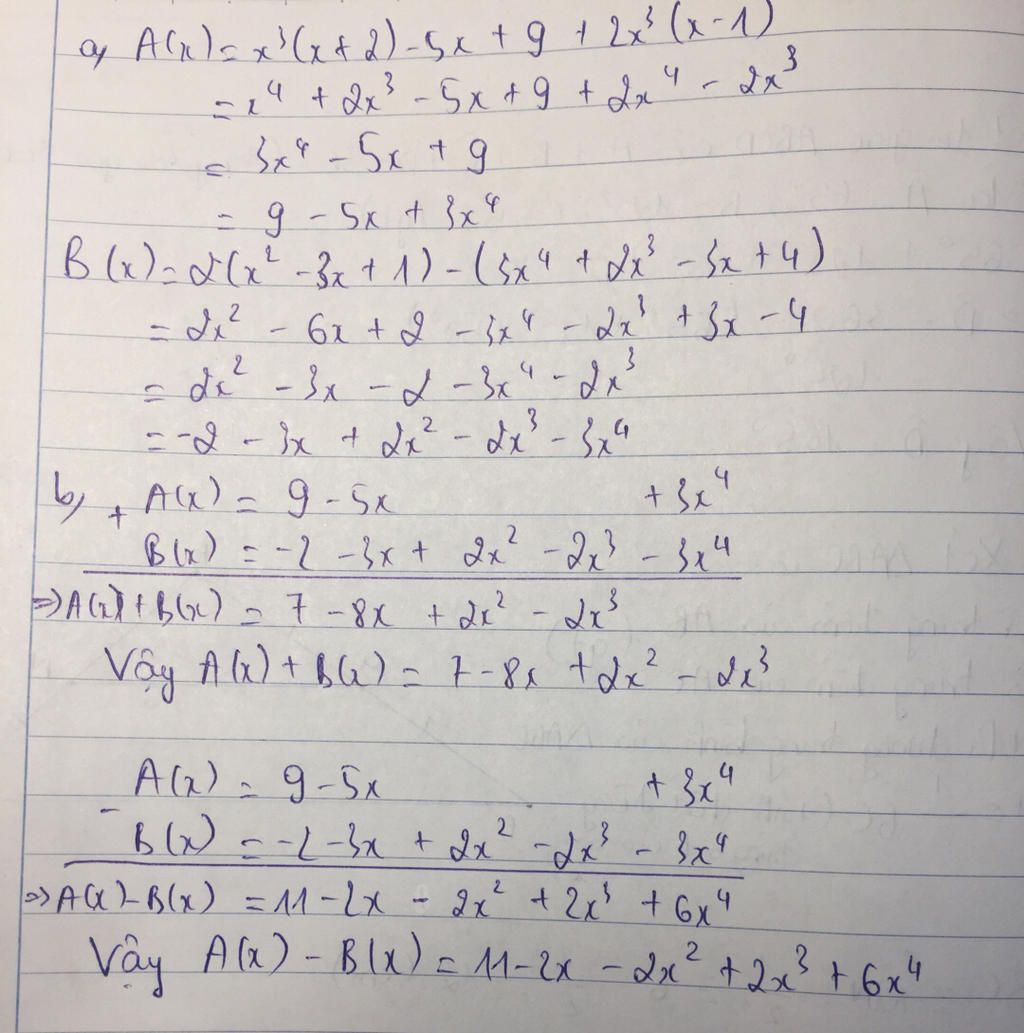 a) A(x) = x³(x+2) - 5x + 9 + 2x³(x-1)
= x⁴ + 2x³ - 5x + 9 + 2x⁴ - 2x³
= 3x⁴ - 5x + 9
= 9 - 5x + 3x⁴
B(x) = 2(x² - 3x + 1) - (3x⁴ + 2x³ - 3x + 4)
= 2x² - 6x + 2 - 3x⁴ - 2x³ + 3x - 4
= 2x² - 3x - 2 - 3x⁴ - 2x³
= -2 - 3x + 2x² - 2x³ - 3x⁴
b) + A(x) = 9 - 5x + 3x⁴
B(x) = -2 - 3x + 2x² - 2x³ - 3x⁴
⇒ A(x) + B(x) = 7 - 8x + 2x² - 2x³
Vậy A(x) + B(x) = 7 - 8x + 2x² - 2x³
- A(x) = 9 - 5x + 3x⁴
B(x) = -2 - 3x + 2x² - 2x³ - 3x⁴
⇒ A(x) - B(x) = 11 - 2x - 2x² + 2x³ + 6x⁴
Vậy A(x) - B(x) = 11 - 2x - 2x² + 2x³ + 6x⁴